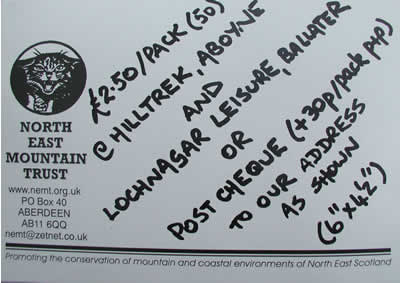 NORTH
EAST
MOUNTAIN
TRUST
www.nemt.org.uk
PO Box 40
ABERDEEN
AB11 6QQ
nemt@zetnet.co.uk
£2.50/PACK (50)
@ CHILLTREK, ABOYNE
AND
LOCHNAGAR LEISURE, BALLATER
OR
POST CHEQUE (+30p/pack p+p)
TO OUR ADDRESS
AS SHOWN
(6" x 4½")
Promoting the conservation of mountain and coastal environments of North East Scotland